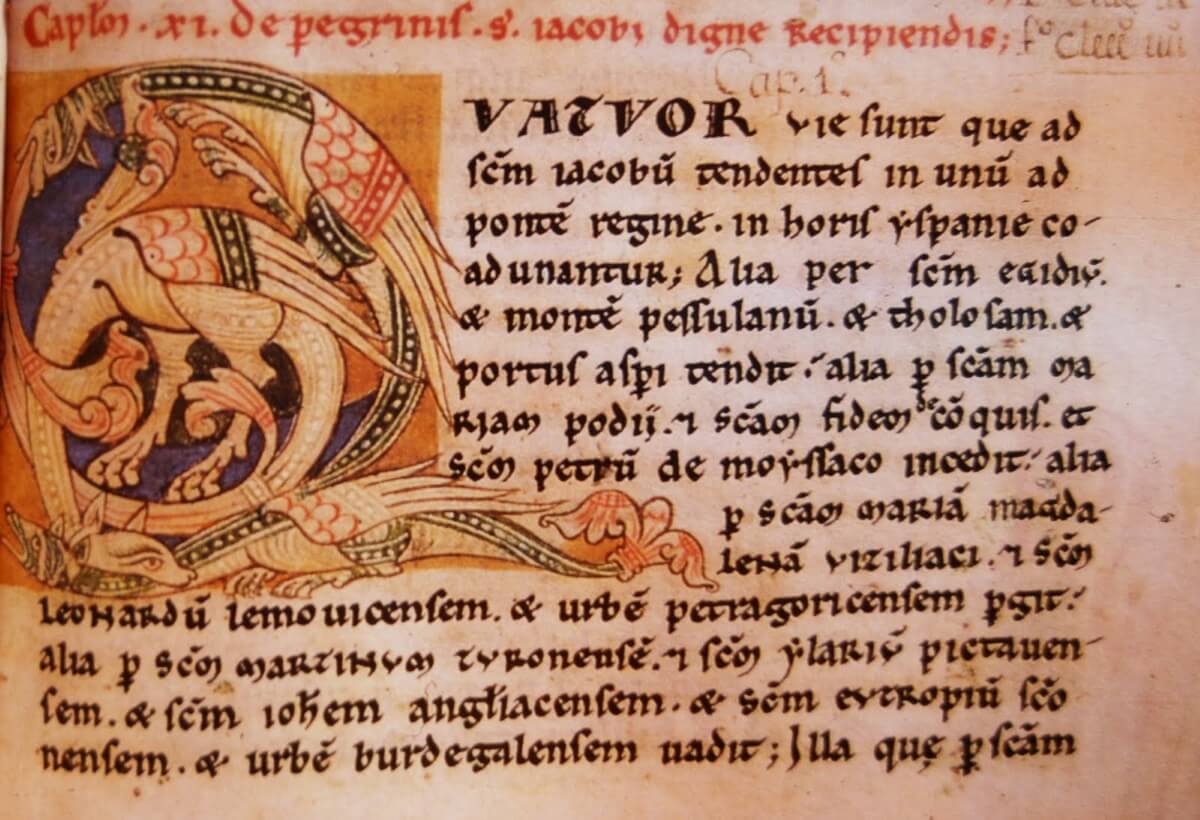 Capło᷒. xi. de pegrinis. s̃. iacobi digne Recipiendis;
Cap. 1.
QVATVOR vie sunt que ad
sc̃m iacobũ tendentes in unũ ad
pontẽ regine. in horis yspanie co-
adunantur; Alia per sc̃m egidiũ.
& montẽ pessulanũ. & tholosam. &
portus aspi tendit. alia ꝑ sc̃am ma
riam podij. ⁊ sc̃am fidem de cõquis. et
sc̃m petrũ de moyssaco incedit. alia
ꝑ sc̃am mariã magda-
lenã viziliaci. ⁊ sc̃m
leonardũ lemouicensem. & urbẽ petragoricensem ꝑgit.
alia ꝑ sc̃m martinum turonensẽ. ⁊ sc̃m ylariũ pictauen-
sem. & sc̃m ioħem angłiacensem. & sc̃m eutropiũ scõ
nensem. & urbẽ burdegalensem uadit; Illa quę ꝑ sc̃am